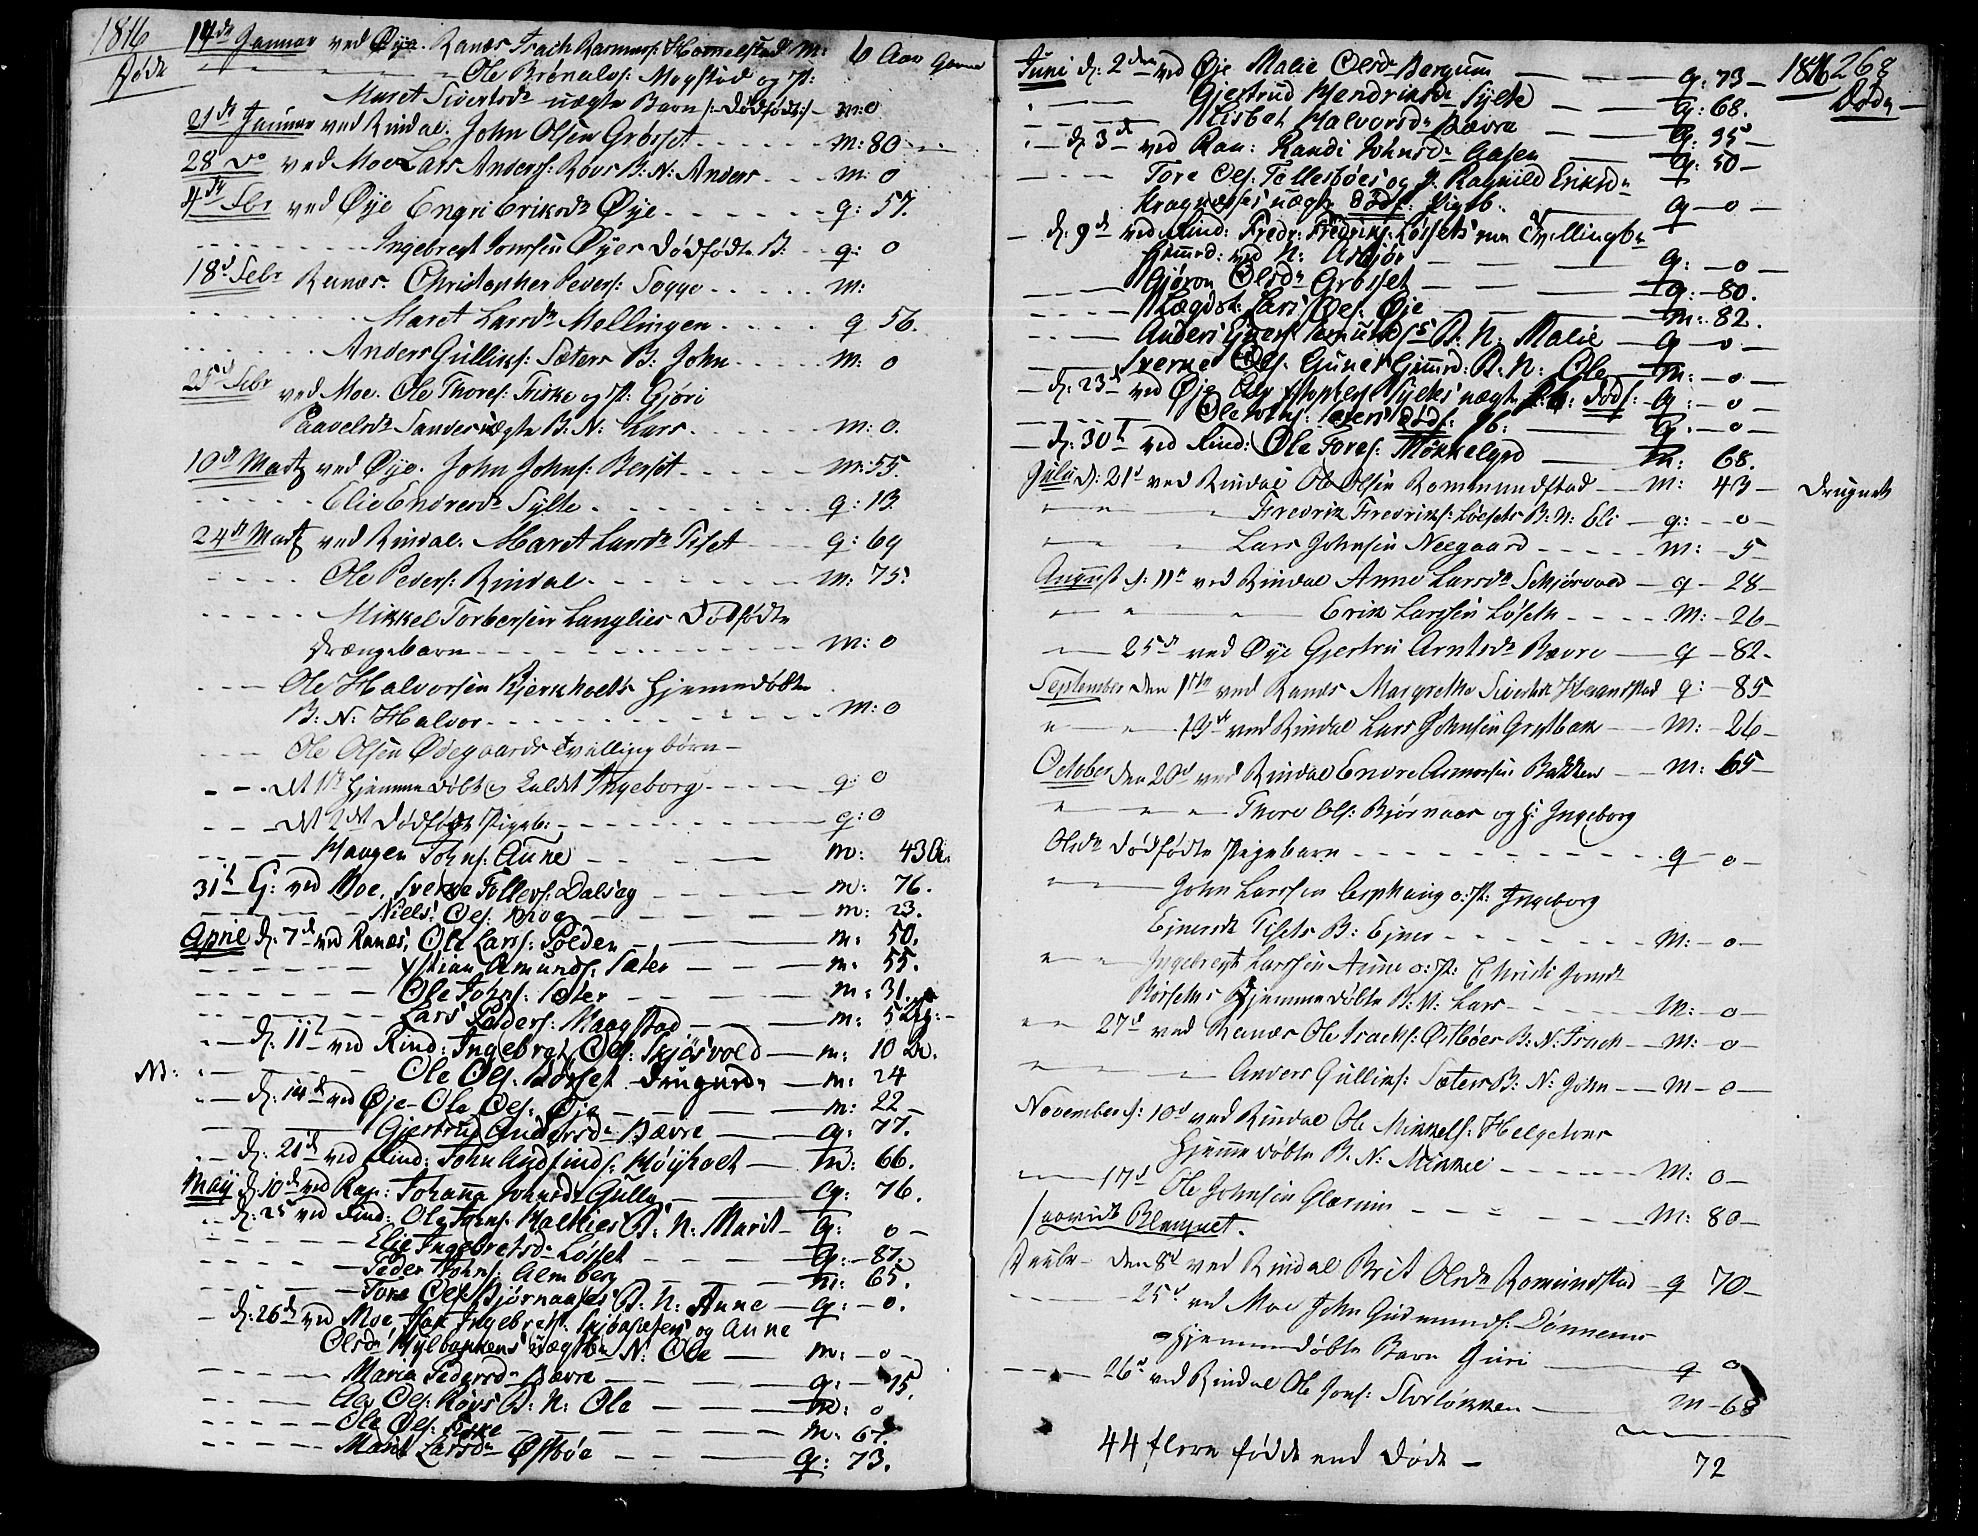 1816
Døde
14de Januar ved Øye. Ranæs Trach Rasmuss: Hamelstad M: 6 Aar gammel
Ole Brønalvs: Mogstad og P:
Maret Sivertsdr uægte Barn /: dødfødt :/ m: 0
21de Januar ved Rindal. John Olsen Grøsset m: 80
28 do ved Moe Lars Anderss: Røvs B: N: Anders m: 0
4de Febr ved Øye Engri Eriksdr Øye q: 57.
Ingebregt Jonssen Øyes Dødfødte B: q: 0
18d Febr Ranæs. Christopher Peders: Togge m:
Maret Larsdr Mellingen q 56.
Anders Gullins: Sæters B: John m: 0
25d Febr ved Moe. Ole Thores: Fiske og P: Gjøri
Paavelsdr Sandes uægte B: N: Lars m: 0.
10d Martz ved Øye. John Johns: Bersøt m: 55.
Elie Endresdr Sylte q: 13.
24d Martz ved Rindal. Maret Larsdr Tiset q: 69
Ole Peders: Rindal m: 75.
Mikkel Torbersen Langlies Dødfødte
Drængebarn m: 0
Ole Halvorsen Bjerkholts Hjemmedøbte
B: N: Halvor m: 0
Ole Olsen Ødegaards tvillingbørn
det 1te Hjemmedøbt og Kaldet Ingeborg q: 0
det 2det Dødfødt Pigeb: q: 0
Haagen Johns: Aune m: 43 A.
31t E: ved Moe. Sverke Tollevs: Dalseg m: 76.
Niels Ols: Moe m: 23.
April d: 7d ved Ranæs. Ole Larss: Polden m: 50.
Christian Amunds: Sæter m: 55.
Ole Johns: Sæter m: 31.
Lars Peders: Maagstad m: 5
d: 11t ved Rind: Ingebrgt Ols: Skjøsvold m: 10
M: Ole Ols: Børset Drugnede m: 24
d: 14d ved Øje Ole Ols: Øje m: 22
Gjertrud Andersdr Bævre q: 77.
d: 21d ved Rind: John Andfinds: Høyholt m: 66.
Maij d: 10d ved Ran: Johana Johnsdr Gulla q: 76.
d: 25 ved Rind: Ole Johns: Halthies B: N: Marit q: 0
Elie Ingebretsdr Løsset q: 87.
Peder Johns: Almberg m: 65.
Tore Ols: Bjørnaases B: N: Anne q: 0.
d: 26d ved Moe Ingebrets: og Anne
Olsdr uægte B: N: Ole m: 0
Maria Pedersdr Bævre q: 75.
Ole Ols: Røvs B: N: Ole m: 0
Ole Ols: Fiske m: 67.
Marit Larsdr Østbøe q: 73.
Juni d: 2den ved Øje Malie Olsdr Bergum q: 73
Gjertrud Hendriksdr Sylte q: 68.
Lisbet Halvorsdr Bævre q: 95
d: 3d ved Ran: Randi Johnsdr Aasen q: 50
Tore Ols: Tellesbøes og P: Ragnild Eriksdr
uægte dødf: Pigeb. q 0
d: 9d ved Rind: Fredr: Fredriks: Løssets een Tvillingbr
hjemd: ved N: Asbjør q: 0
Gjøron Olsdr Grøsset q: 80.
Lægdsl: Lars Ols: Øje m: 82.
Anders B: N: Malie q 0
Sverke Ols: hjemd: B: N: Ole m: 0
d: 23d ved Øje uægte dødf: q: 0
Ole dødf: q: 0
d: 30t ved Rind: Ole Tores: Møkkelgrd m: 68.
Julii d: 21d ved Rindal Ole Olsen Rommundstad m: 43 Drugnet
Fredrik Fredriks: Løssets B: N: Eli q: 0
Lars Johnsen Neegaard m: 5
August d: 11t ved Rindal Anne Larsdr Schjørvold q 28
Erik Larssen Løseth M: 26
25d ved Øye Gjertru Arntsdr Bævre q 82
September den 1te ved Ranæs Margrethe Sivertsdr Hammelstad q: 85
15d ved Rindal Lars Johnsen Grytbak M: 26
October den 20d ved Rindal Endre Asmorsen Bakken M: 65
Thore Ols: Bjørnaas og H: Ingeborg
Olsdr Dødfødte Pigebarn q 0
John Larssen Asphaug o: P: Ingeborg
Ejnersdr Tisets B: Ejner M: 0
Ingebregt Larssen Aune o: P: Christi Jonsdr
Børsets Hjemmedøbte B: N: Lars M: 0
27d ved Ranæs Ole Trachs: Østbøes B: N: Trach M: 0
Anders Gullins: Sæters B: N: John M 0
November d: 10d ved Rindal Ole Mikkels: Helgetons
Hjemmedøbte B: N: Mikkel M: 0
17d Ole Johnsen Glærum M: 80
Blanquet.
Decbr den 8d ved Rindal Brit Olsdr Romundstad q 70
25d ved Moe John Gudmunds: Dønnems
Hjemmedøbte Barn Guri q 0
26d ved Rindal Ole Jons: Storløkken M 68
44 flere fødde end Døde 72
1816 268
Døde